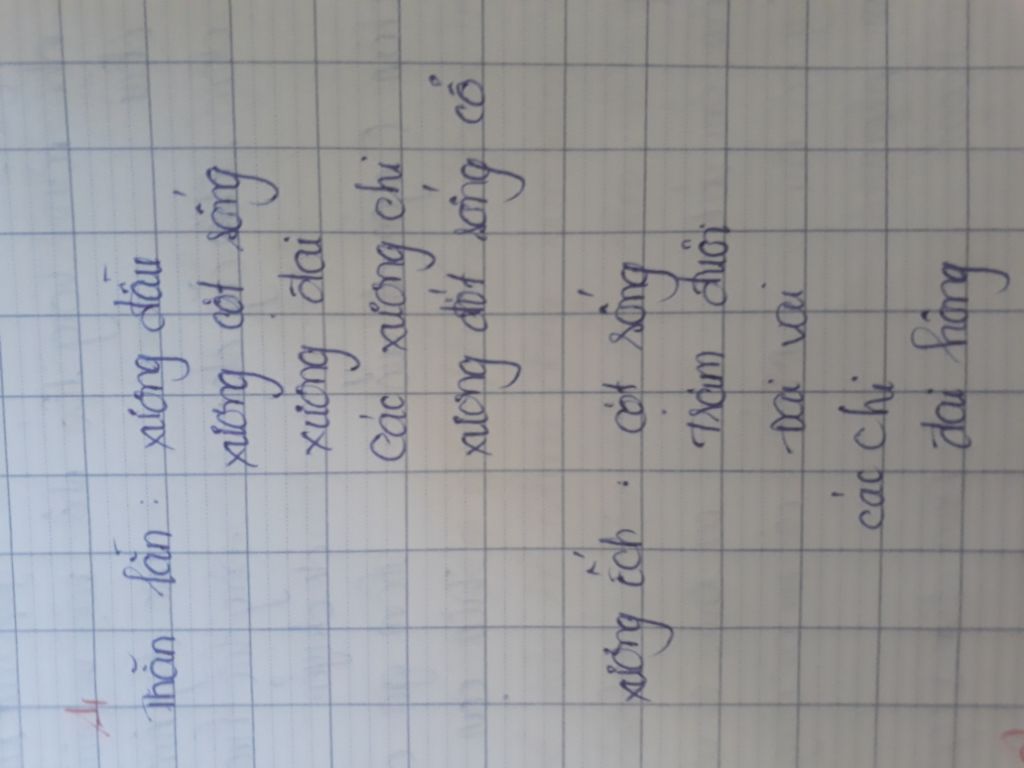 1,
Thằn lằn : xương đầu
xương cột sống
xương đai
các xương chi
xương đốt sống cổ
xương ếch : cột sống
Trâm đuôi
Đai vai
các chi
đai hông